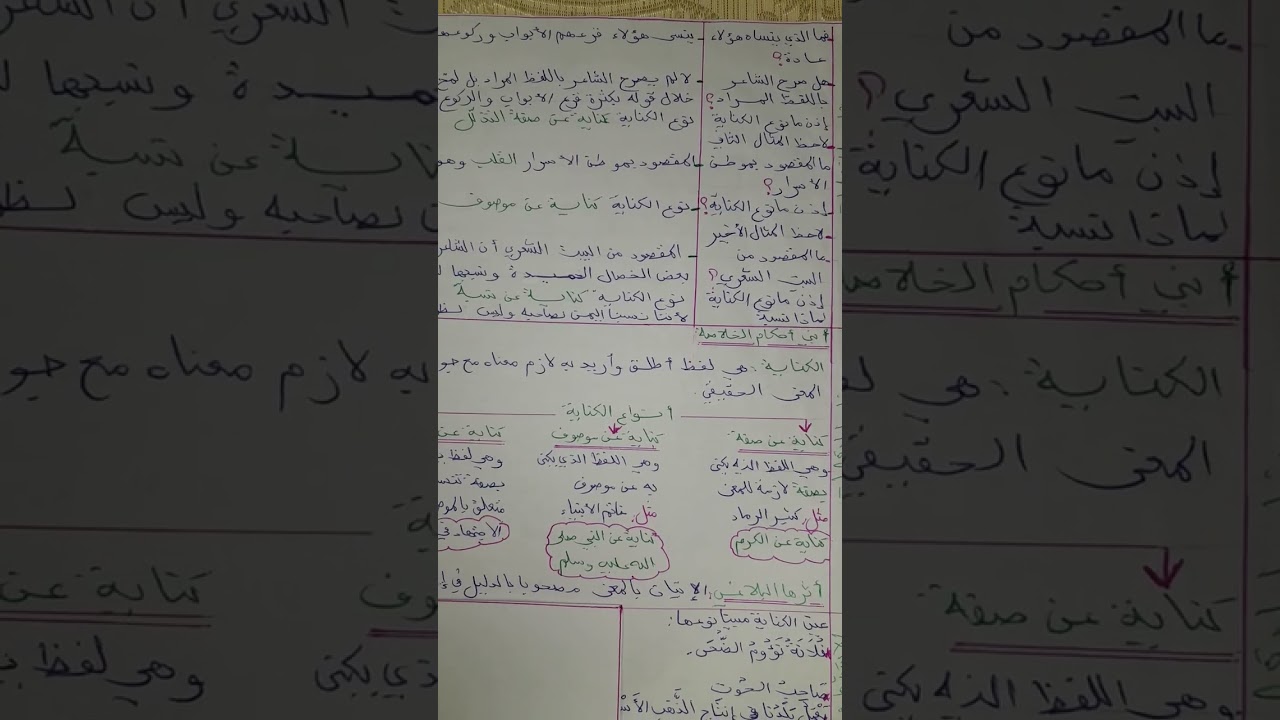 فما الذي ينساه هؤلاء
عادة؟
هل صرح الشاعر
باللفظ المراد؟
إذن ما نوع الكناية
لاحظ المثال الثاني
ما المقصود بموطن
الأسرار؟
إذن ما نوع الكناية؟
لاحظ المثال الأخير
ما المقصود من
البيت الشعري؟
إذن ما نوع الكناية
لماذا نسبة
ـ ينسى هؤلاء قرعهم الأبواب وركوعهم
ـ لا لم يصرح الشاعر باللفظ المراد بل
خلال قوله بكثرة قرع الأبواب والركوع
نوع الكناية كناية عن صفة التذلل
ـ المقصود بموطن الأسرار القلب وهو
ـ نوع الكناية كناية عن موصوف
ـ المقصود من البيت الشعري أن الشاعر
بعض الخصال الحميدة ونسبها
نوع الكناية كناية عن نسبة
لأننا نسبنا اليمن لصاحبه وليس
أبني أحكام الخلاصة
الكناية: هي لفظ أطلق وأريد به لازم معناه مع جو
المعنى الحقيقي.
أنواع الكناية
كناية عن صفة
وهي اللفظ الذي يكنى
بصفة لازمة للمعنى
مثل: كثير الرماد
كناية عن الكرم
كناية عن موصوف
وهي اللفظ الذي يكنى
به عن موصوف
مثل: خاتم الأنبياء
كناية عن النبي صلى
الله عليه وسلم
كناية عن
وهي لفظ
بصفة
متعلق
أثرها البلاغي: الإتيان بالمعنى مصحوبا بالدليل في
عين الكناية مبينا نوعها:
فلانة نَؤُومُ الضُّحَى.
صَاحِبُ الحُوتِ
بَلَدُنَا فِي إِنْتَاجِ الذَّهَبِ